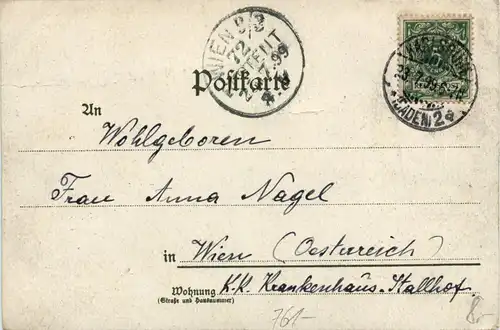 WIEN 9/3
72
BESTELLT
99
Postkarte
KARLSRUHE
(BADEN) 2
An
Wohlgeboren
Frau Anna Nagel
in Wien (Oesterreich)
Wohnung K.K. Krankenhaus-Stallhof
(Straße und Hausnummer)
761-
8,-